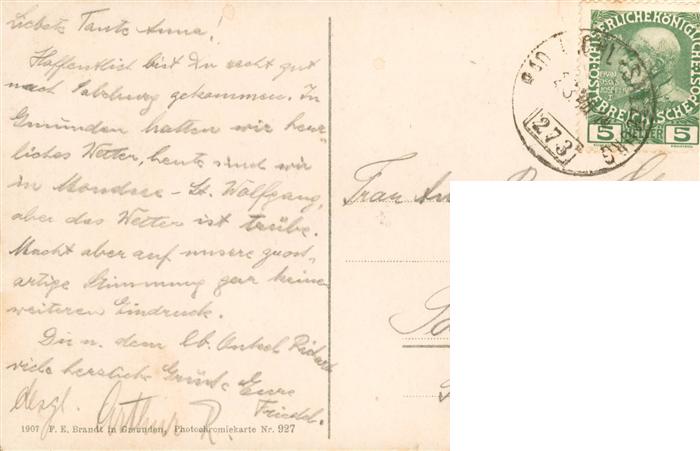 Liebste Tante Anna!
Hoffentlich bist Du recht gut
nach Salzburg gekommen. In
Gmunden hatten wir herr-
liches Wetter, heute sind wir
in Mondsee - St. Wolfgang,
aber das Wetter ist trübe.
Macht aber auf unsere gross-
artige Stimmung gar keinen
weiteren Eindruck.
Dir u. dem lb. Onkel Richard
viele herzliche Grüße Eure
Friedl.
desgl. Arthur R.
1907 F. E. Brandt in Gmunden, Photochromiekarte Nr. 927
KAISERLICHE KÖNIGLICHE
ÖSTERREICHISCHE
5 HELLER 5
273
Frau